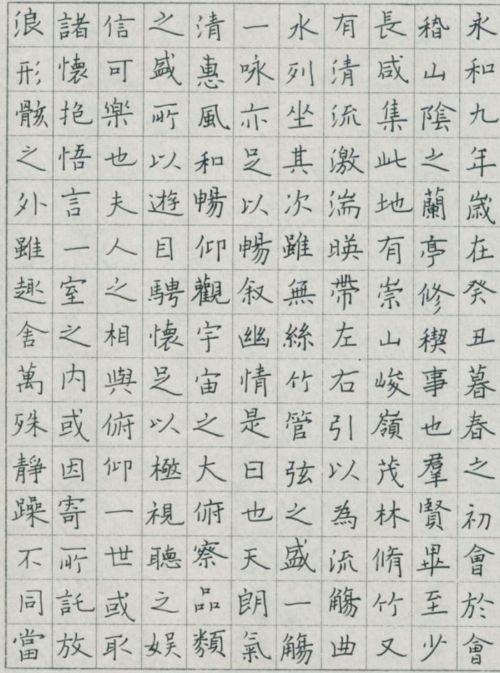 永和九年歲在癸丑暮春之初會於會
稽山陰之蘭亭修稧事也羣賢畢至少
長咸集此地有崇山峻嶺茂林脩竹又
有清流激湍暎帶左右引以為流觴曲
水列坐其次雖無絲竹管弦之盛一觴
一咏亦足以暢叙幽情是日也天朗氣
清惠風和暢仰觀宇宙之大俯察品類
之盛所以遊目騁懷足以極視聽之娛
信可樂也夫人之相與俯仰一世或取
諸懷抱悟言一室之内或因寄所託放
浪形骸之外雖趣舍萬殊靜躁不同當